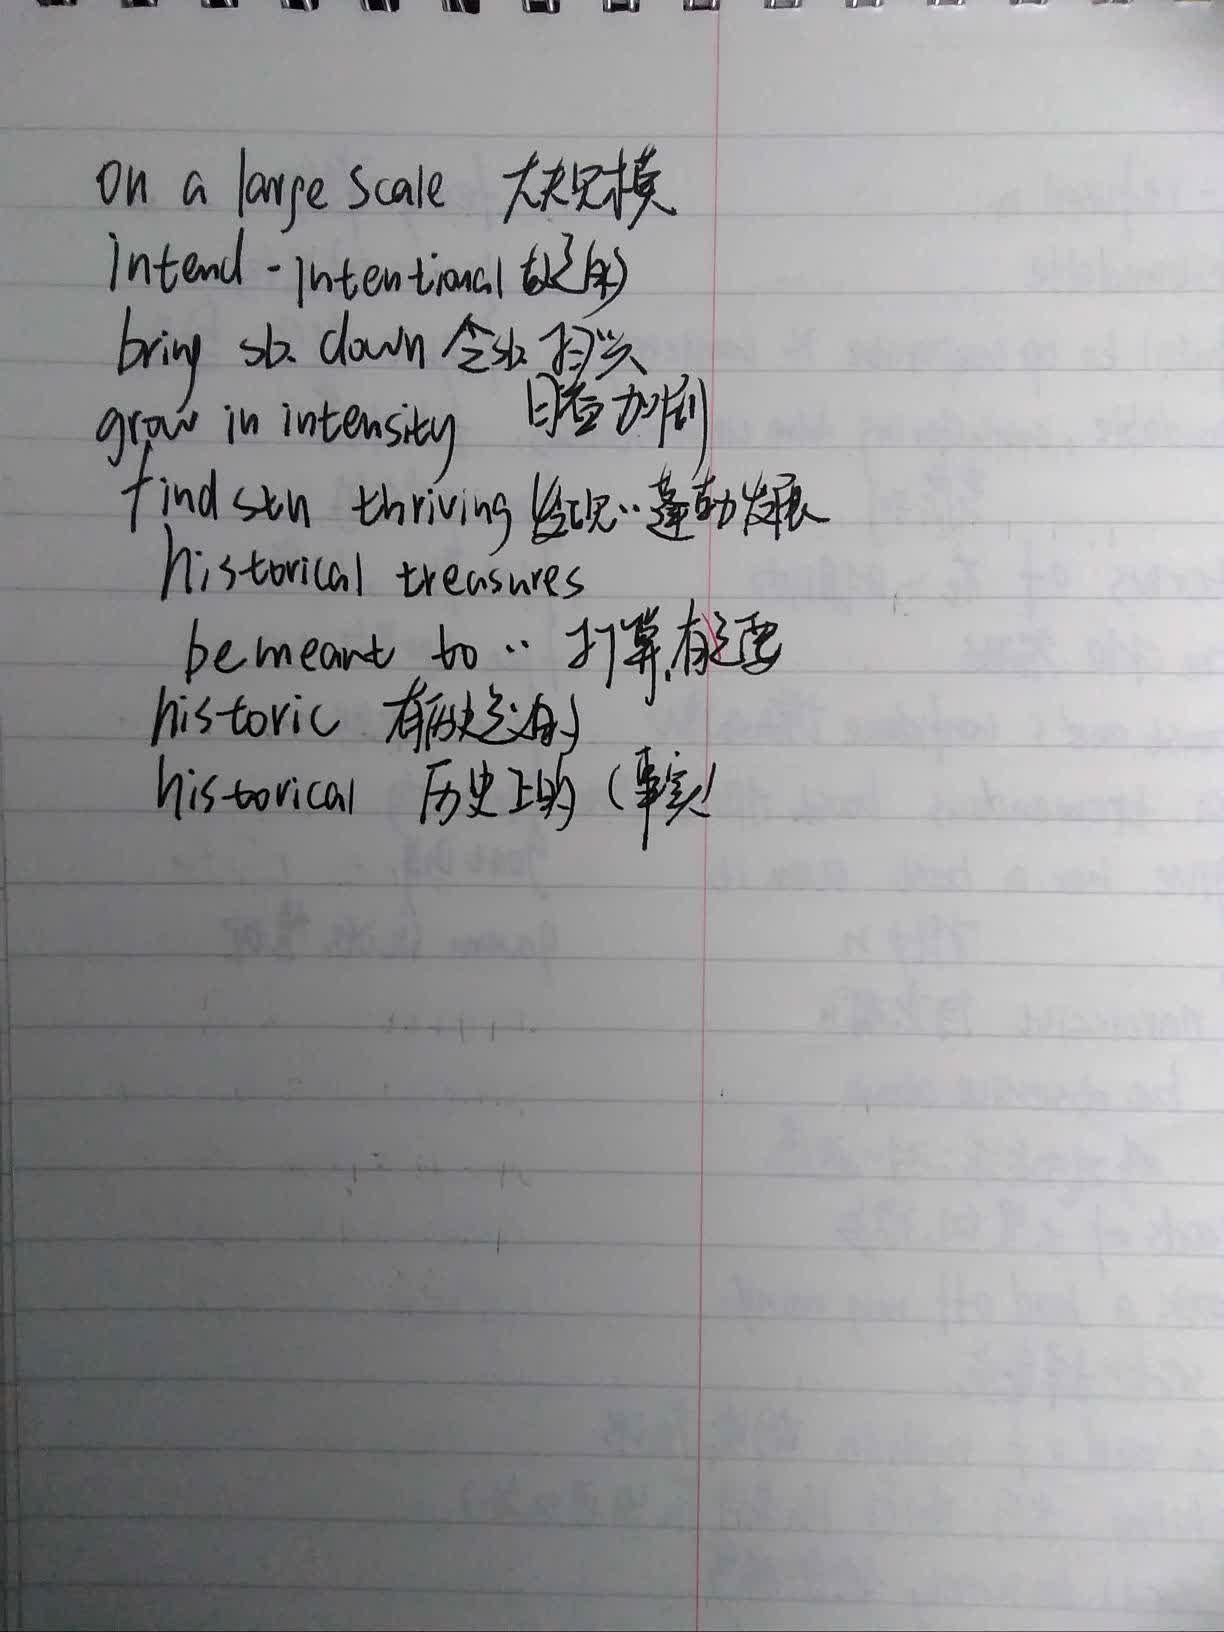 on a large scale 大规模
intend - intentional 故意的
bring sb. down 令sb. 扫兴
grow in intensity 日益加剧
find sth thriving 发现.. 蓬勃发展
historical treasures
be meant to .. 打算,有意要
historic 有历史意义的
historical 历史上的 (事实)